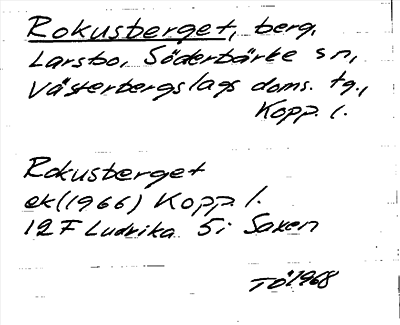 Rokusberget, berg,
Larsbo, Söderbärke sn,
Västerbergslags doms. tg.,
Kopp. l.
Rokusberget
ek (1966) Kopp l.
12F Ludvika 5i Saxen
TÖ 1968